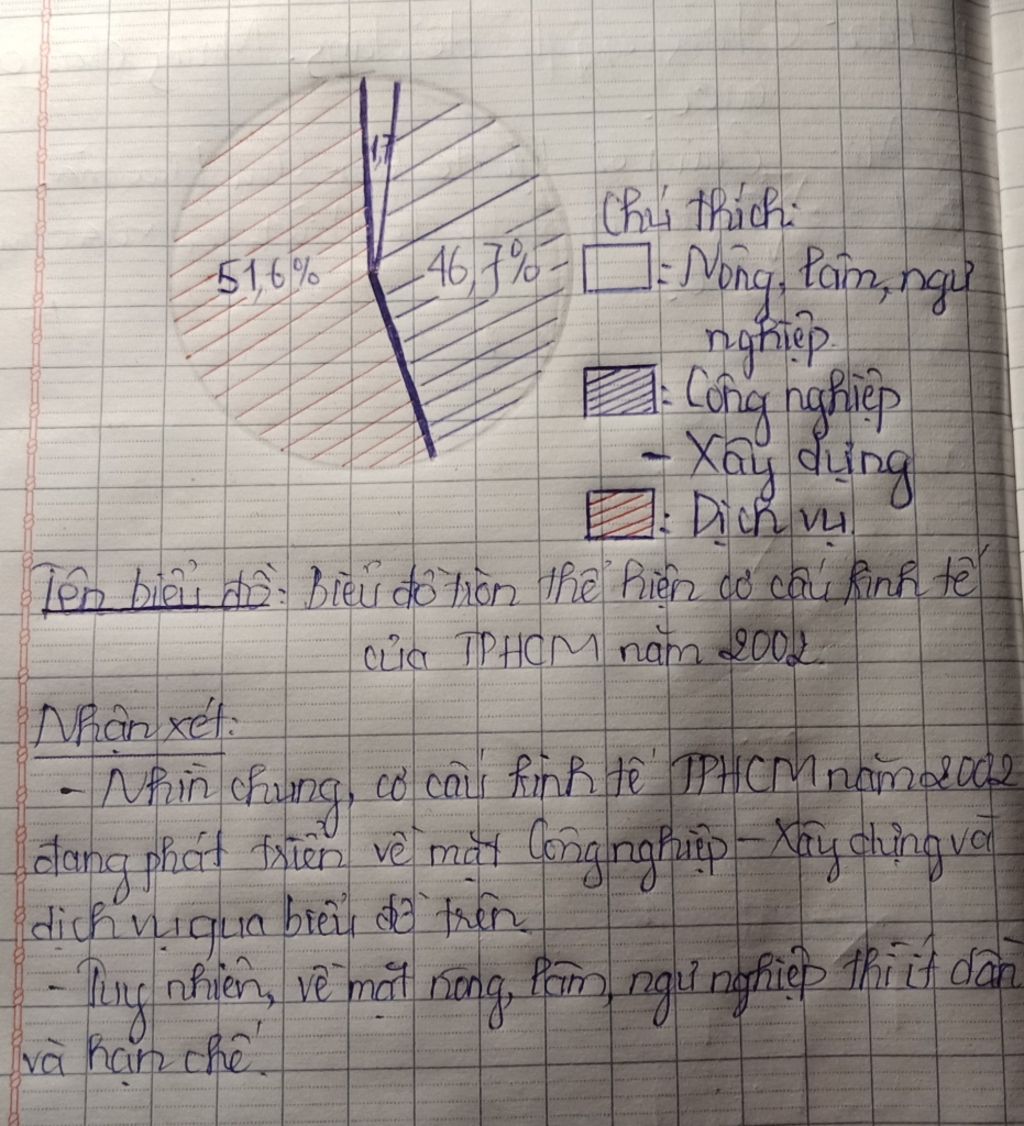 1,7
51,6%
46,7%
Chú thích:
: Nông, lâm, ngư
nghiệp.
: Công nghiệp
- Xây dựng
: Dịch vụ.
Tên biểu đồ: Biểu đồ tròn thể hiện cơ cấu kinh tế
của TPHCM năm 2002.
Nhận xét:
- Nhìn chung, cơ cấu kinh tế TPHCM năm 2002
đang phát triển về mặt Công nghiệp - Xây dựng và
dịch vụ qua biểu đồ trên.
- Tuy nhiên, về mặt nông, lâm, ngư nghiệp thì ít dần
và hạn chế.